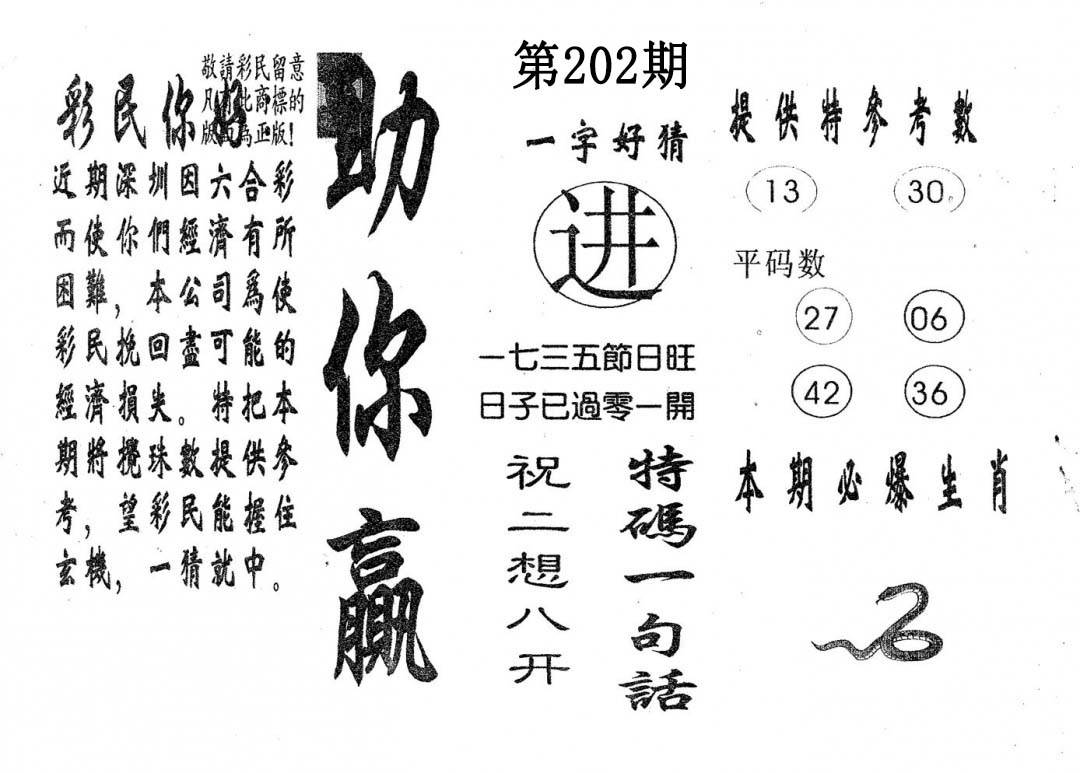 第202期
敬請彩民留意
凡有此商標的
版面為正版!
彩民你好
近期深圳因六合彩
而使你們經濟有所
困難，本公司爲使
彩民挽回盡可能的
經濟損失。特把本
期將攪珠數提供參
考，望彩民能握住
玄機，一猜就中。
助你贏
一字好猜
进
一七三五節日旺
日子已過零一開
特碼一句話
祝二想八开
提供特參考數
13 30
平码数
27 06
42 36
本期必爆生肖